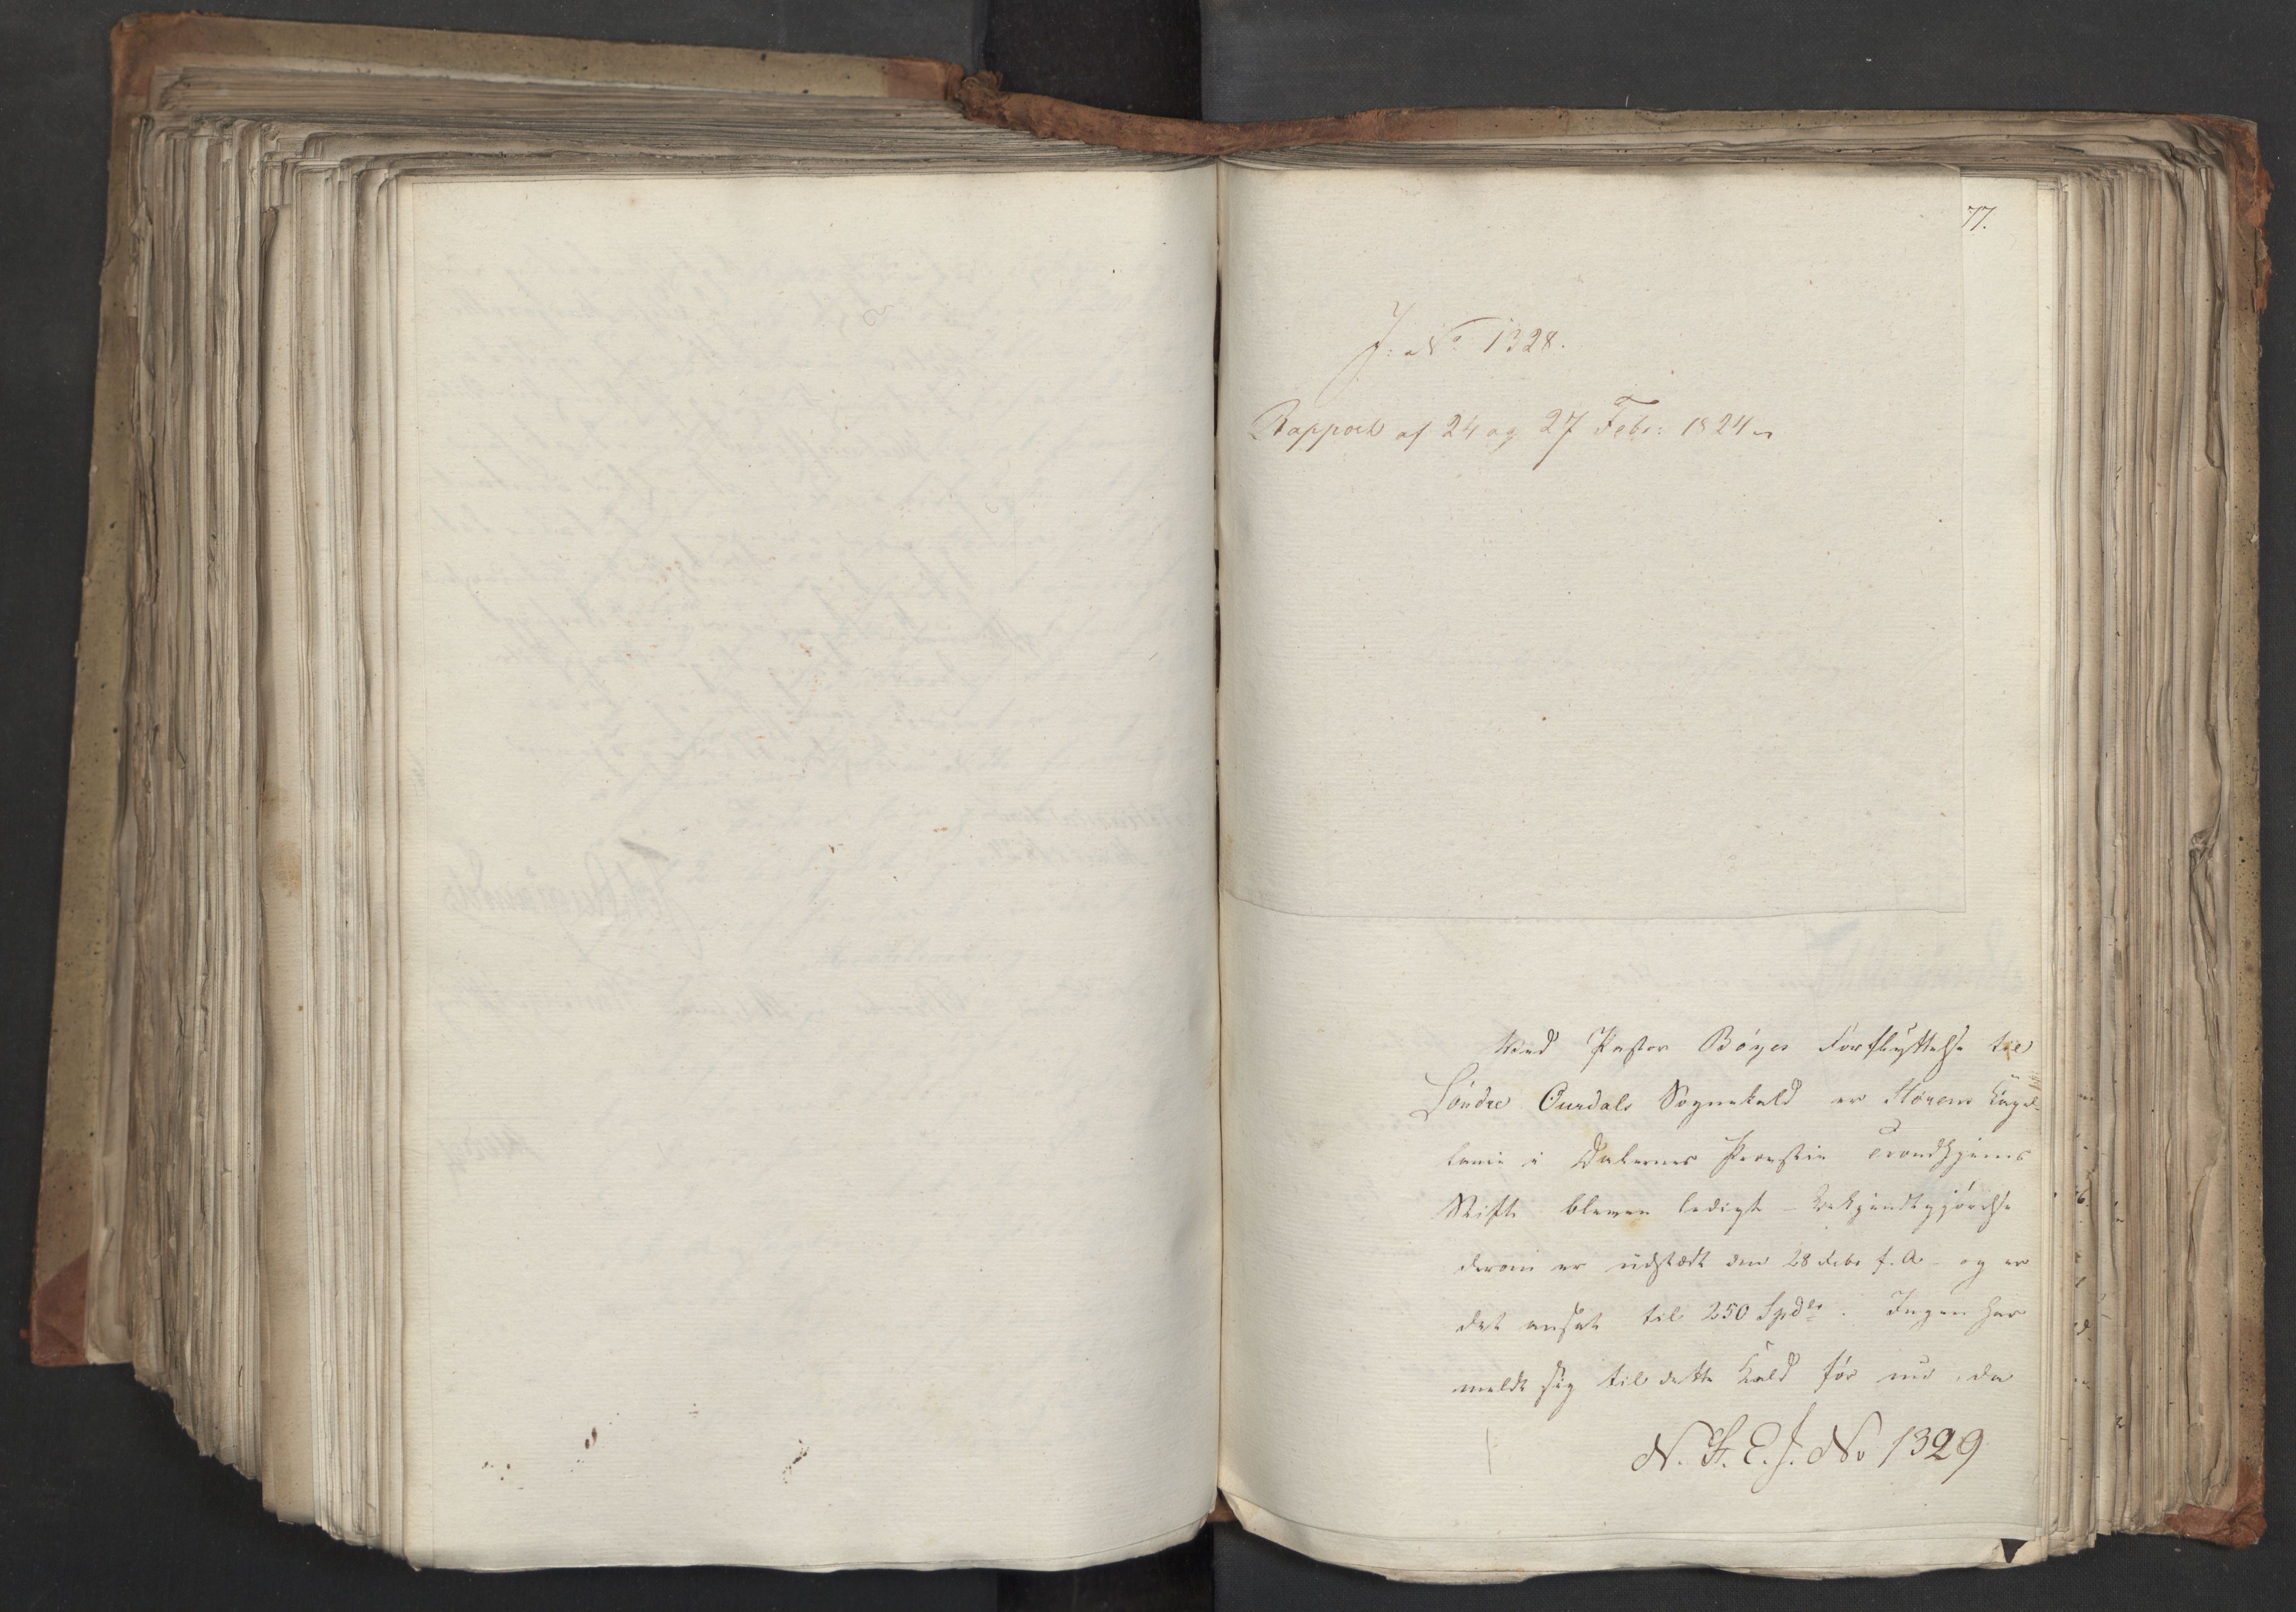 77.
J: No 1328.
Rapport af 24 og 27 Febr: 1824
Ved Pastor Böyes Forflyttelse til
Söndre Ourdals Sognekald er Störens Capel-
lanie i Dalernes Provstie Trondhjems
Stift bleven ledigt - Bekjendtgjörelse
derom er udstædt den 28 Febr f. A. - og er
det ansat til 250 Spdlr. Ingen har
meldt sig til dette Kald för nu, da
N. F. C. J. No 1329